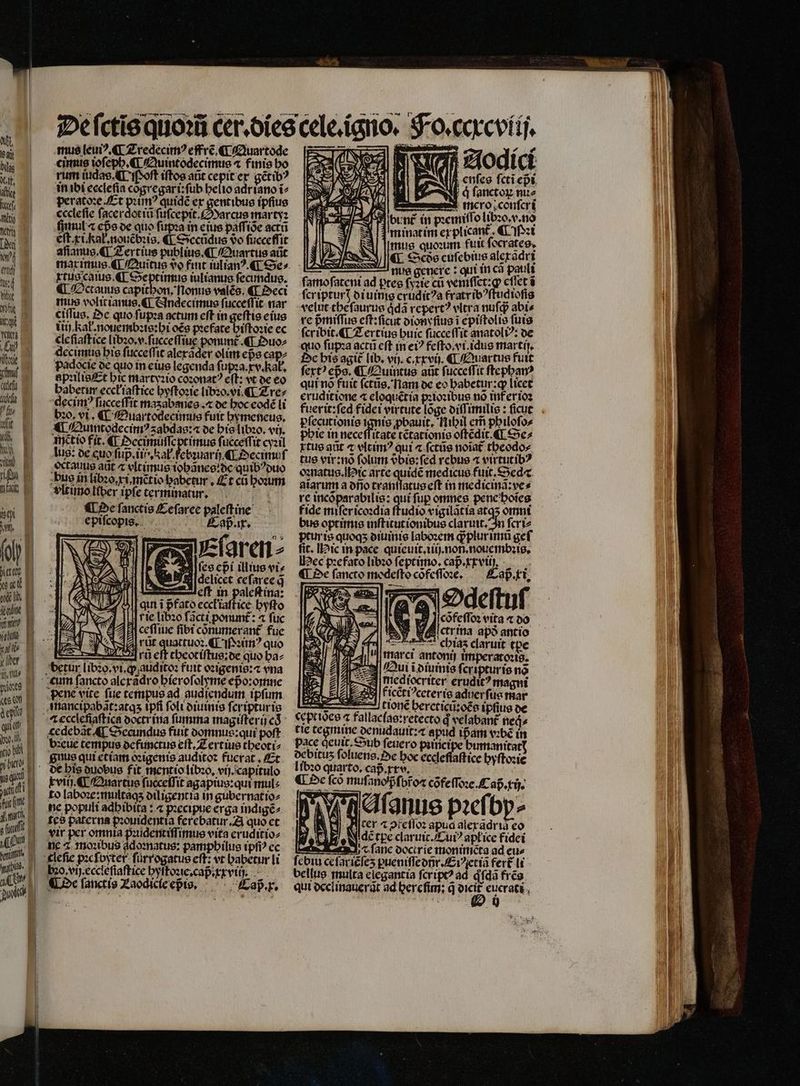 De sctis quorū cer. dies cele. igno. Fo. ccxcviij.
mus leui⁹. ¶ Tredecim⁹ effrē. ¶ Quartode
cimus ioseph. ¶ Quintodecimus ⁊ finis ho
rum iudas. ¶ Post istos aūt cepit ex gētib⁹
in ibi ecclesia cōgregari: sub helio adriano i⸗
peratore. Et prim⁹ quidē ex gentibus ipsius
ecclesie sacerdotiū suscepit. Marcus martyr
simul ⁊ eps̄ de quo supra in eius passiōe actū
est. xi. kal̄. nouēbris. ¶ Secūdus v̄o successit
asianus. ¶ Tertius publius. ¶ Quartus aūt
maximus. ¶ Quitus v̄o fuit iulian⁹. ¶ Se⸗
xtus caius. ¶ Septimus iulianus secundus.
¶ Octauus capithon. Nonus valēs. ¶ Deci
mus volitianus. ¶ Undecimus successit nar
cissus. De quo supra actum est in gestis eius
iiij. kal̄. nouembris: hi oēs prefate histore ec
clesiastice libro. v. successiue ponunt̄. ¶ Duo⸗
decimus his successit alexāder olim eps̄ cap⸗
padocie de quo in eius legenda supra. xv. kal̄.
aprilis Et hic martyrio coronat⁹ est: vt de eo
habetur eccl̄iastice hystorie libro. vi. ¶ Tre⸗
decim⁹ successit mazabanes. ⁊ de hoc eodē li
bro. vi. ¶ Quartodecimus fuit hymeneus.
¶ Quintodecim⁹ zabdas: ⁊ de his libro. vij.
mētio fit. ¶ Decimusseptimus successit cyril
lus: de quo sup. iij. kal̄. februarij. ¶ Decimus
octauus aūt ⁊ vltimus iohānes: de quib⁹ duo
bus in libro. xi. mētio habetur. Et cū horum
vltimo liber ipse terminatur.
¶ De sanctis Cesaree palestine
episcopis. Cap̄. ix.
CEsaren⸗
ses ep̄i illius vi⸗
delicet cesaree q̄
est in palestina:
qui ī p̄fato eccl̄iastice hysto
rie libro sācti ponunt̄: ⁊ suc
cessiue sibi cōnumerant̄ fue
rūt quattuor. ¶ Prim⁹ quo
rū est theotistus: de quo ha⸗
betur libro. vi. ꝙ auditor fuit origenis: ⁊ vna
cum sancto alexādro hierosolyme ep̄o: omne
pene vite sue tempus ad audiendum ipsum
mancipabāt: atqꝫ ipsi soli diuinis scripturis
⁊ ecclesiastica doctrina summa magisterij cō
cedebāt. ¶ Secundus fuit domnus: qui post
breue tempus defunctus est. Tertius theoti⸗
gnus qui etiam origenis auditor fuerat. Et
de his duobus fit mentio libro. vij. capitulo
xviij. ¶ Quartus successit agapius: qui mul⸗
to labore: multaqꝫ diligentia in gubernatio⸗
ne populi adhibita: ⁊ precipue erga indigē⸗
tes paterna prouidentia ferebatur. A quo et
vir per omnia prudentissimus vita eruditio⸗
ne ⁊ moribus adornatus: pamphilus ipsi⁹ ec
clesie presbyter surrogatus est: vt habetur li
bro. vij. ecclesiastice hystorie. cap̄. xxviij.
¶ De sanctis Laodicie ep̄is. Cap̄. x.
LAodici
enses scti ep̄i
q̄ sanctoꝝ nu⸗
mero conscri
bunt̄ in premisso libro. v. no
minatim explicant̄. ¶ Pri
mus quorum fuit socrates.
¶ Secūs eusebius alexādri
nus genere: qui in cā pauli
samosateni ad ptes syrie cū venisset: ꝙ esset ī
scriptur⁹ diuinis erudit⁹ a fratrib⁹ studiosis
velut thesaurus q̄dā repert⁹ vltra nusq̄ abi⸗
re p̄missus est: sicut dionysius ī epistolis suis
scribit. ¶ Tertius huic successit anatoli⁹: de
quo supra actū est in ei⁹ festo. vi. idus martij.
De his agit̄ lib. vij. c. xxvij. ¶ Quartus fuit
sext⁹ eps̄. ¶ Quintus aūt successit stephan⁹
qui nō fuit sctūs. Nam de eo habetur: ꝙ licet
eruditione ⁊ eloquētia prioribus nō inferior
fuerit: sed fidei virtute lōge dissimilis: sicut
ꝑsecutionis ignis ꝓbauit. Nihil em̄ philoso⸗
phie in necessitate tētationis ostēdit. ¶ Se⸗
xtus aūt ⁊ vltim⁹ qui ⁊ sctūs noiat̄ theodo⸗
tus vir: nō solum v̄bis: sed rebus ⁊ virtutib⁹
ornatus. Hic arte quidē medicus fuit. Sed ⁊
aīarum a dn̄o translatus est in medicinā: ve⸗
re incōparabilis: qui sup omnes pene hoīes
fide misericordia studio vigilātia atqꝫ omni
bus optimis institutionibus claruit. In scri⸗
pturis quoqꝫ diuinis laborem q̄plurimū ges
sit. Hic in pace quieuit. iiij. non. nouembris.
Hec prefato libro septimo. cap̄. xxviij.
¶ De sancto modesto cōfessore. Cap̄. xi.
MOdestus
cōfessor vita ⁊ do
ctrina apō antio
chiaꝫ claruit tpe
marci antonij imperatoris.
Qui ī diuinis scripturis nō
mediocriter erudit⁹ magni
ficēti⁹ ceteris aduersus mar
tionē hereticū: oēs ipsius de
ceptiōes ⁊ fallacias: retecto q̄ velabant̄ neq̄⸗
tie tegmine denudauit: ⁊ apud ip̄am vr̄bē in
pace q̄euit. Sub seuero principe humanitat⁹
debituꝫ soluens. De hoc ecclesiastice hystorie
libro quarto. cap̄. xxv.
¶ De scō musano pr̄sbro ⁊ cōfessore. Cap̄. xij.
MUsanus presby⸗
ter ⁊ ꝯfessor apud alexādriā eo
dē tpe claruit. Cui⁹ aplice fidei
⁊ sanc doctrie monimēta ad eu⸗
sebiū cesariēsez ꝑuenisse dn̄r. Ei⁹ etiā fert̄ li
bellus multa elegantia script⁹ ad q̄sdā frēs
qui declinauerāt ad heresim: q̄ dicit̄ eucrati
O ij